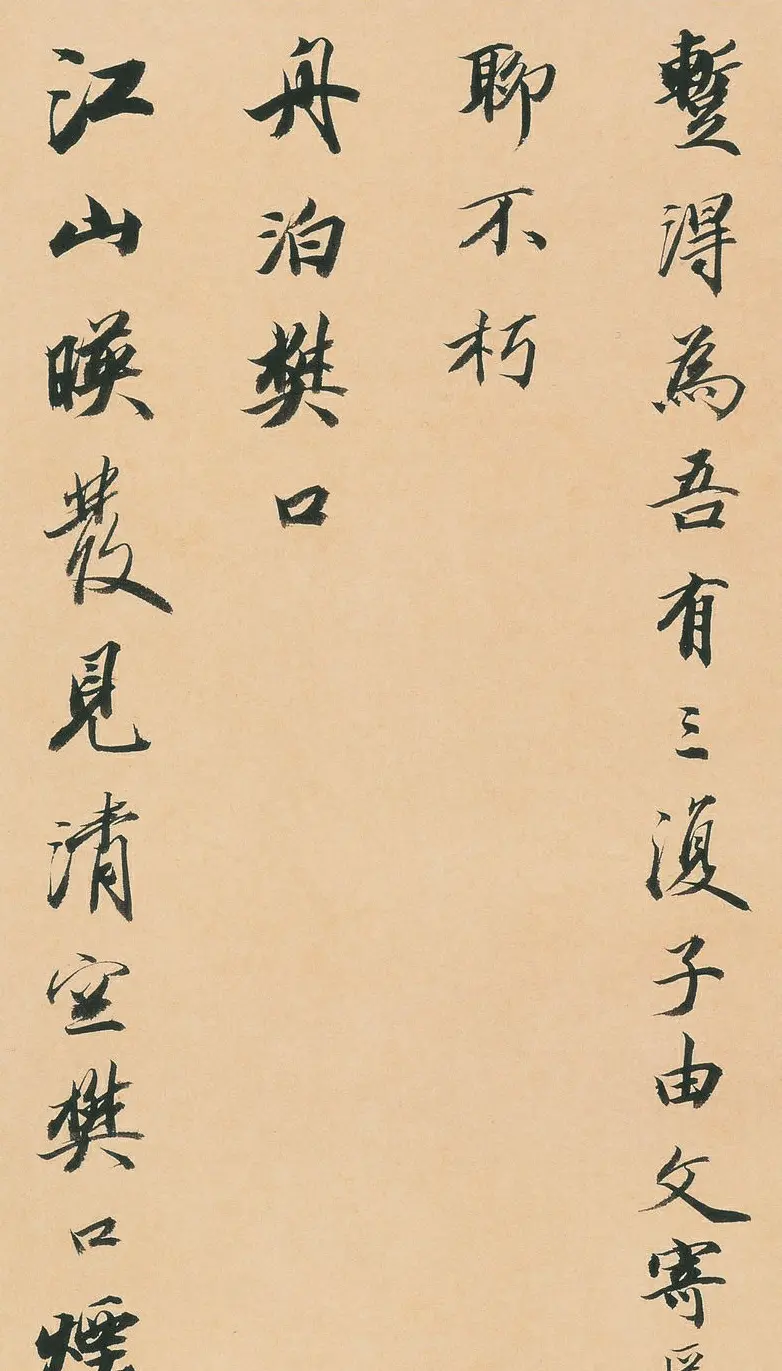 蹔得為吾有三復子由文寄
聊不朽
舟泊樊口
江山暎發見清空樊口煙